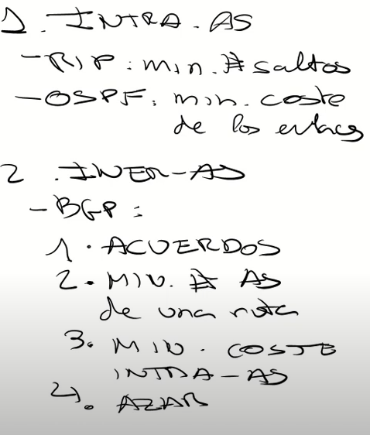 1. INTRA. AS
- RIP: min. # saltos
- OSPF: min. coste
de los enlaces
2. INER-AS
- BGP:
1. ACUERDOS
2. MIN. # AS
de una ruta
3. MIN. COSTE
INTRA-AS
4. AZAR